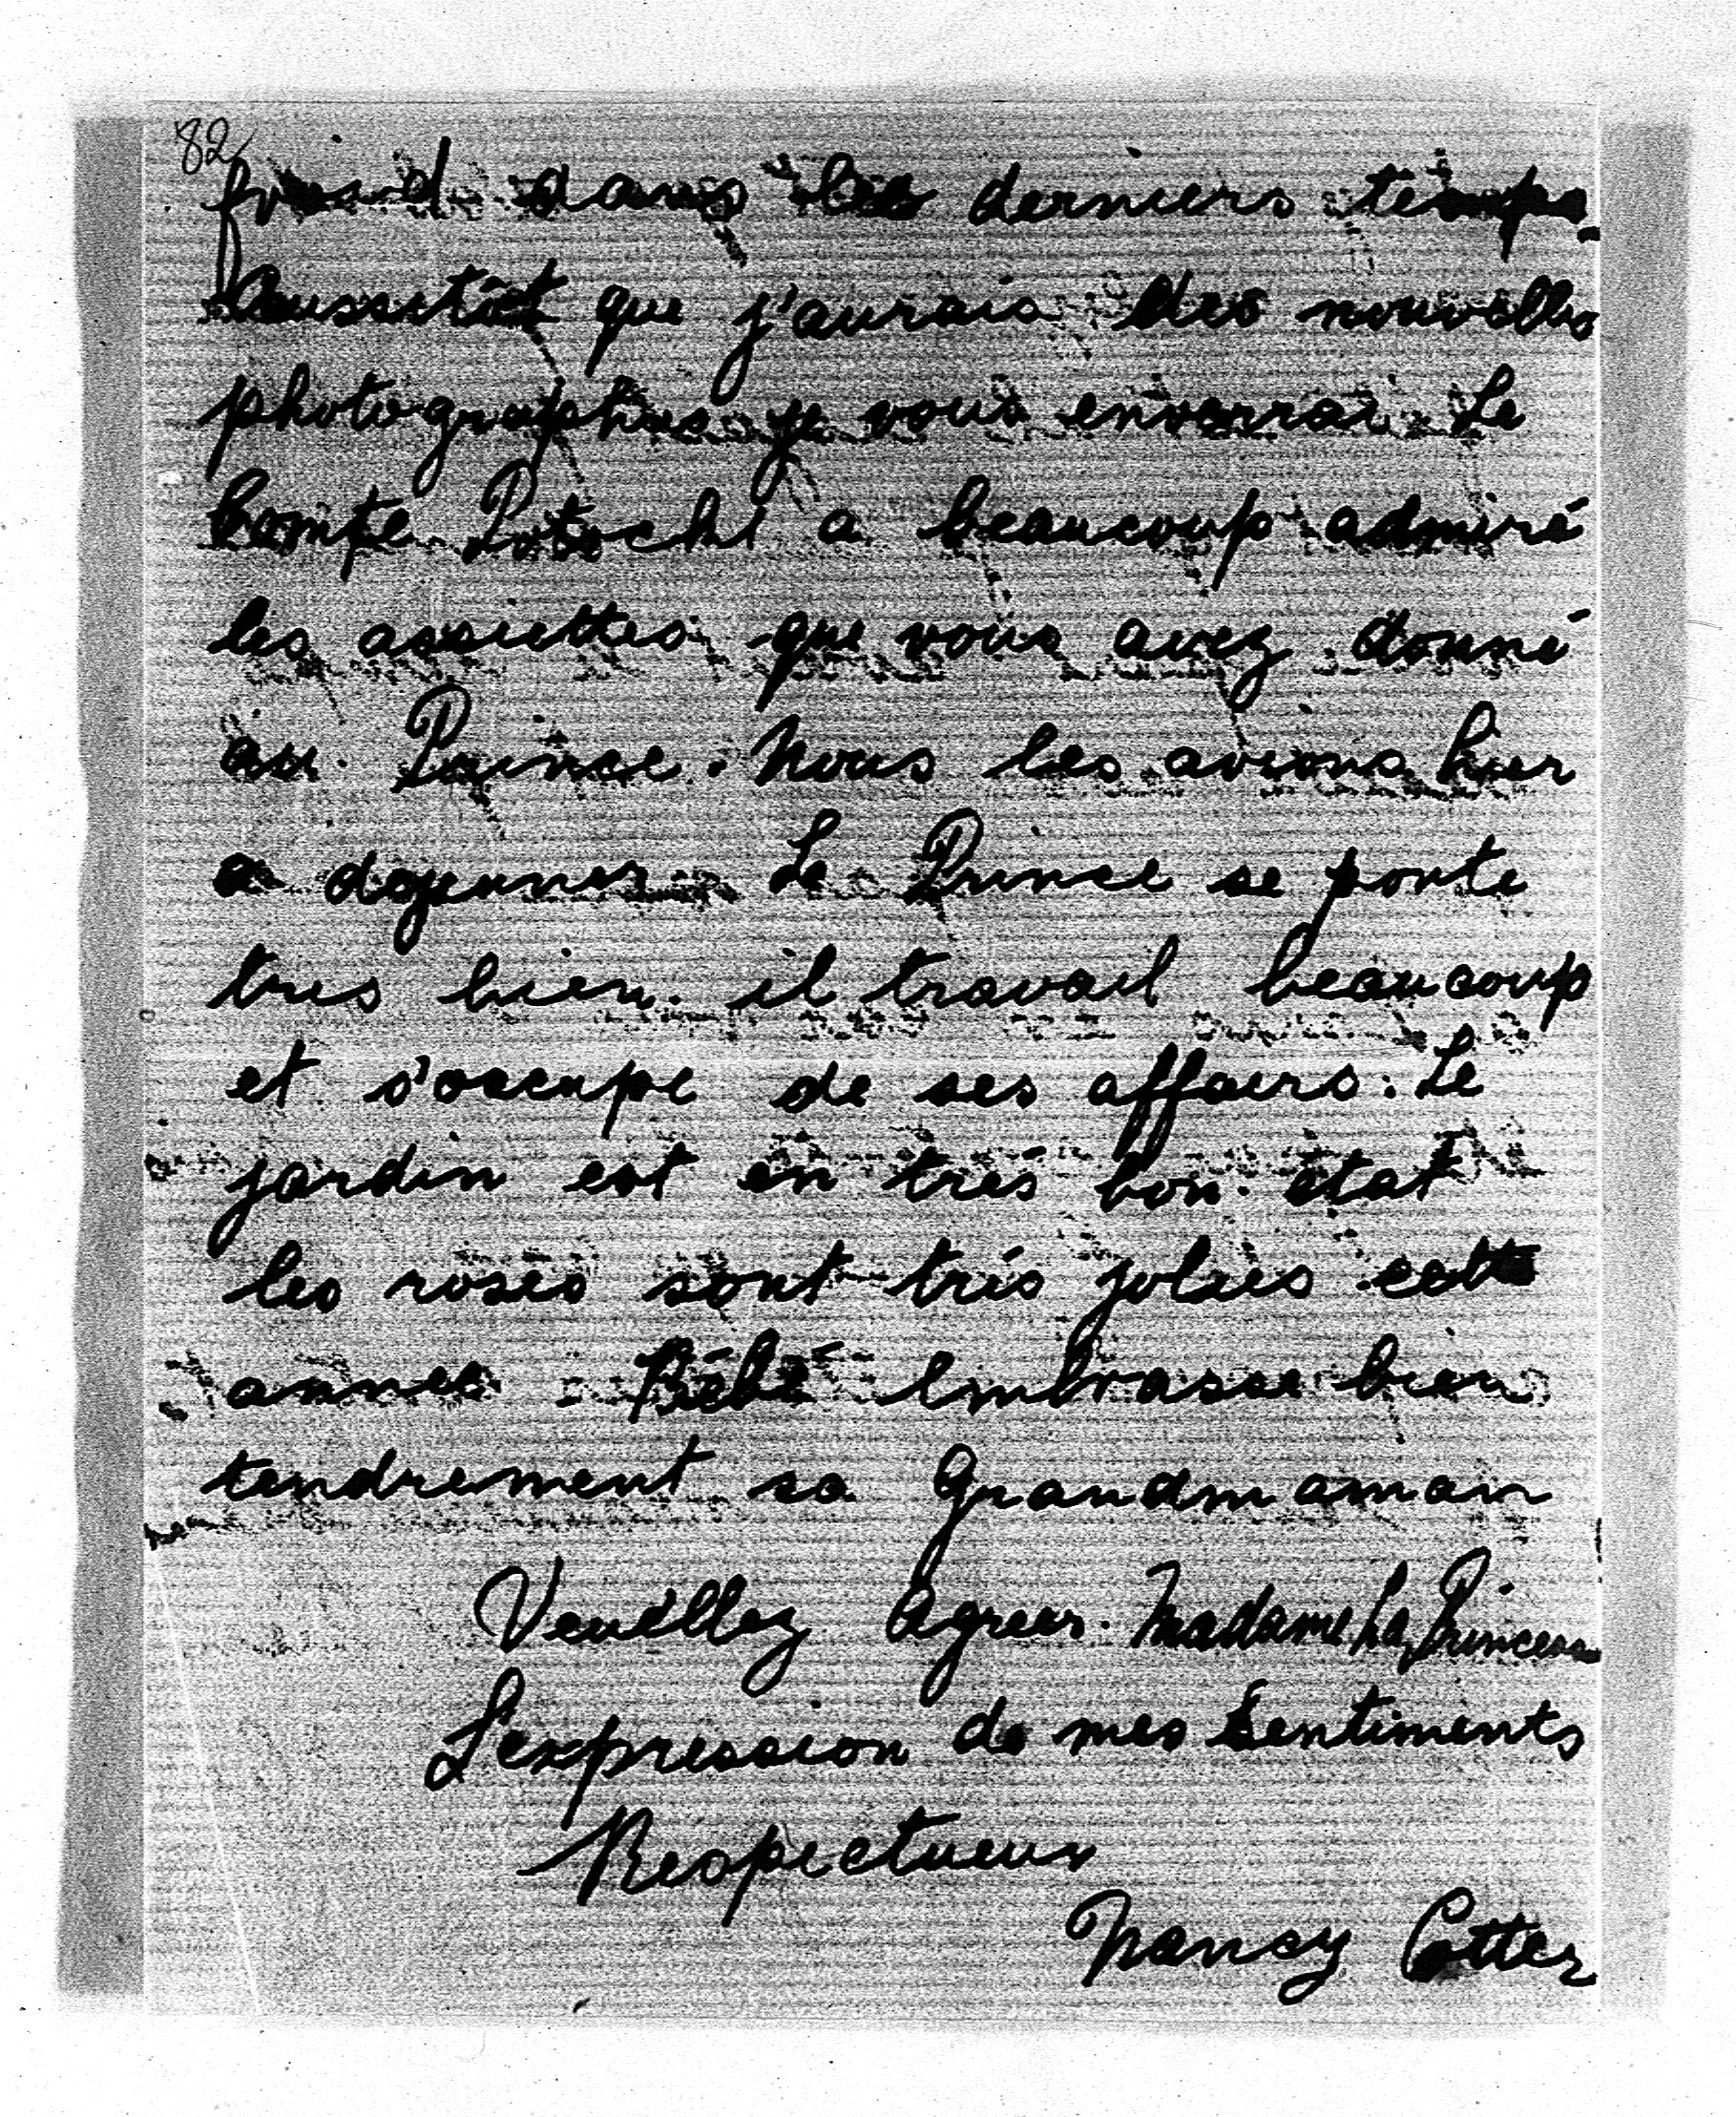 82
froid dans les derniers temps.
Aussitôt que j'aurais des nouvelles
photographies je vous enverrai. Le
Compte Potocki a beaucoup admiré
les assiettes que vous avez donné
au Prince. Nous les avions hier
a dejeuner. Le Prince se porte
tres bien. il travail beaucoup
et s'occupe de ses affaers. Le
jardin est en très bon état
les roses sont très jolies cette
annee. Bébé embrasse bien
tendrement sa Grandmaman
Veuillez Agreer. Madame La Princess
L'expression de mes Sentiments
Respectueux
Nancy Cotter